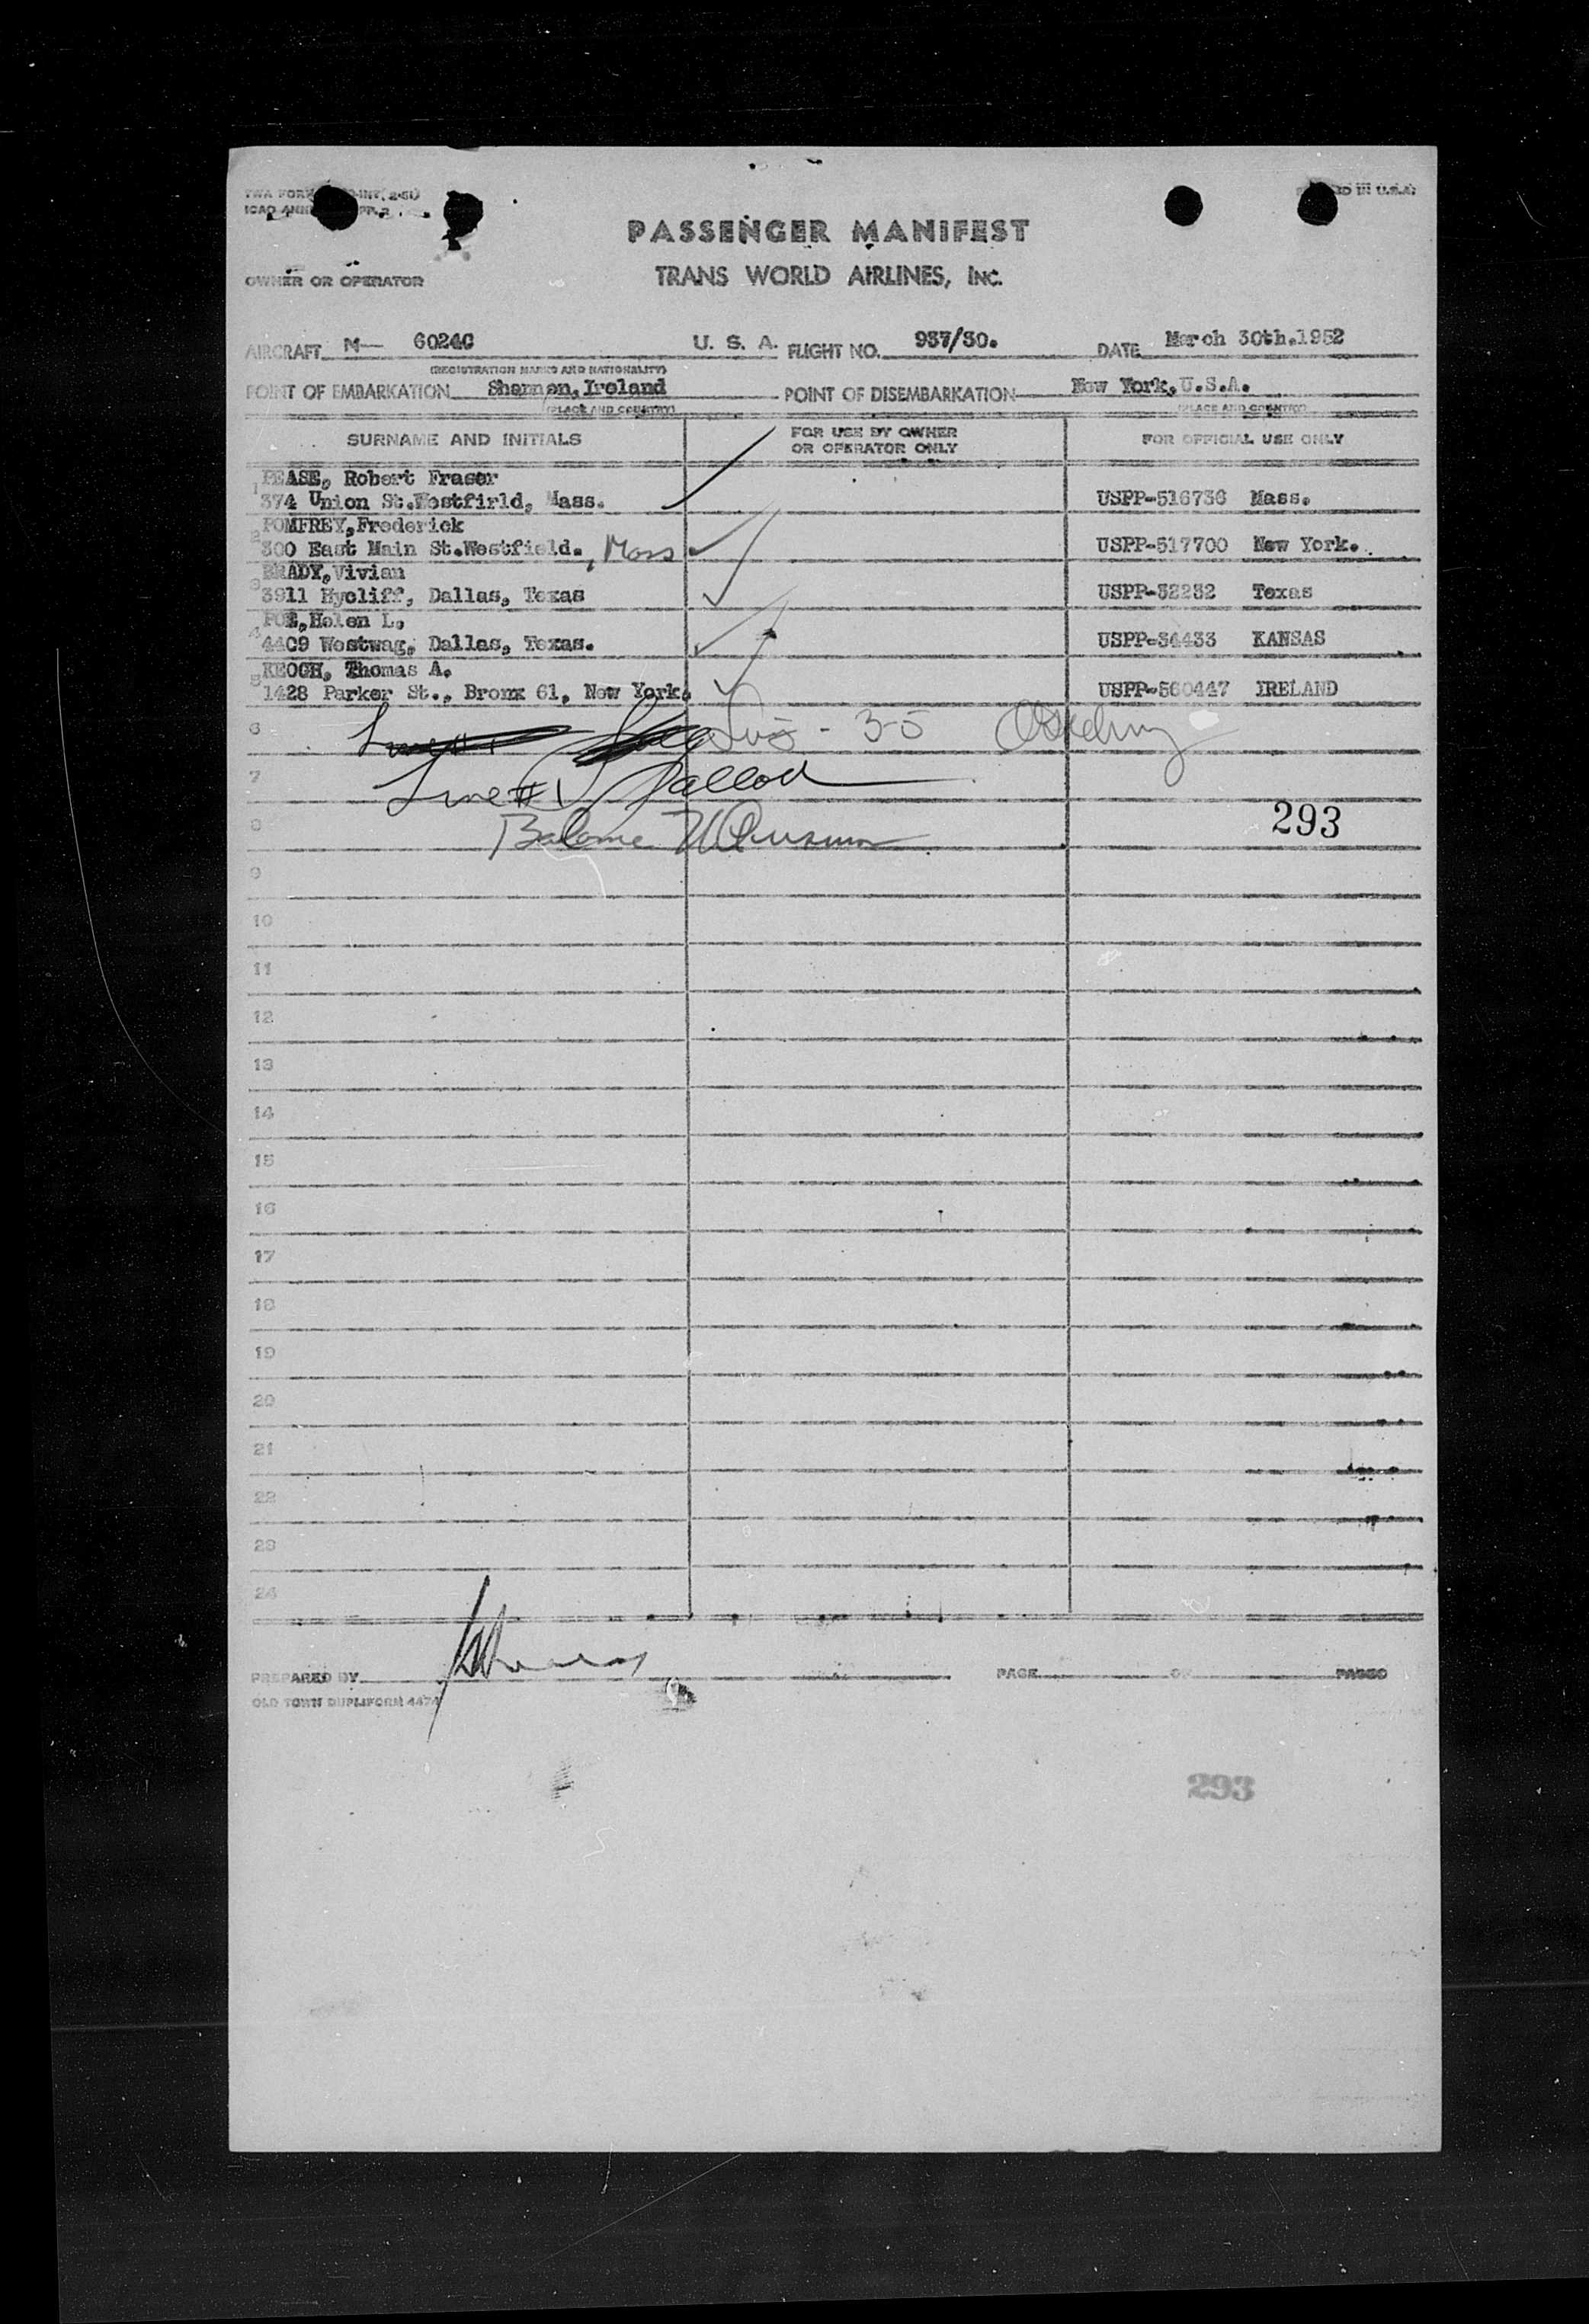 TWA FORM -INT(2-51)
ICAO ANN
D IN U.S.A.
PASSENGER MANIFEST
TRANS WORLD AIRLINES, INC.
OWNER OR OPERATOR
AIRCRAFT N— 6024C U. S. A. FLIGHT NO. 937/30. DATE March 30th.1952
(REGISTRATION MARKS AND NATIONALITY)
POINT OF EMBARKATION Shannon, Ireland POINT OF DISEMBARKATION New York, U.S.A.
(PLACE AND COUNTRY) (PLACE AND COUNTRY)
SURNAME AND INITIALS FOR USE BY OWNER OR OPERATOR ONLY FOR OFFICIAL USE ONLY
1 PEASE, Robert Fraser
374 Union St.Westfirld, Mass. USPP-516736 Mass.
2 POMFREY,Frederick
300 East Main St.Westfield., Mass USPP-517700 New York.
3 BRADY,Vivian
3911 Hycliff, Dallas, Texas USPP-32232 Texas
4 POE,Helen L.
4409 Westwag, Dallas, Texas. USPP-34433 KANSAS
5 KEOGH, Thomas A.
1428 Parker St., Bronx 61, New York. USPP-560447 IRELAND
6
7 Line #1
8 293
9
10
11
12
13
14
15
16
17
18
19
20
21
22
23
24
PREPARED BY PAGE OF PAGES
OLD TOWN DUPLIFORM 4474
293